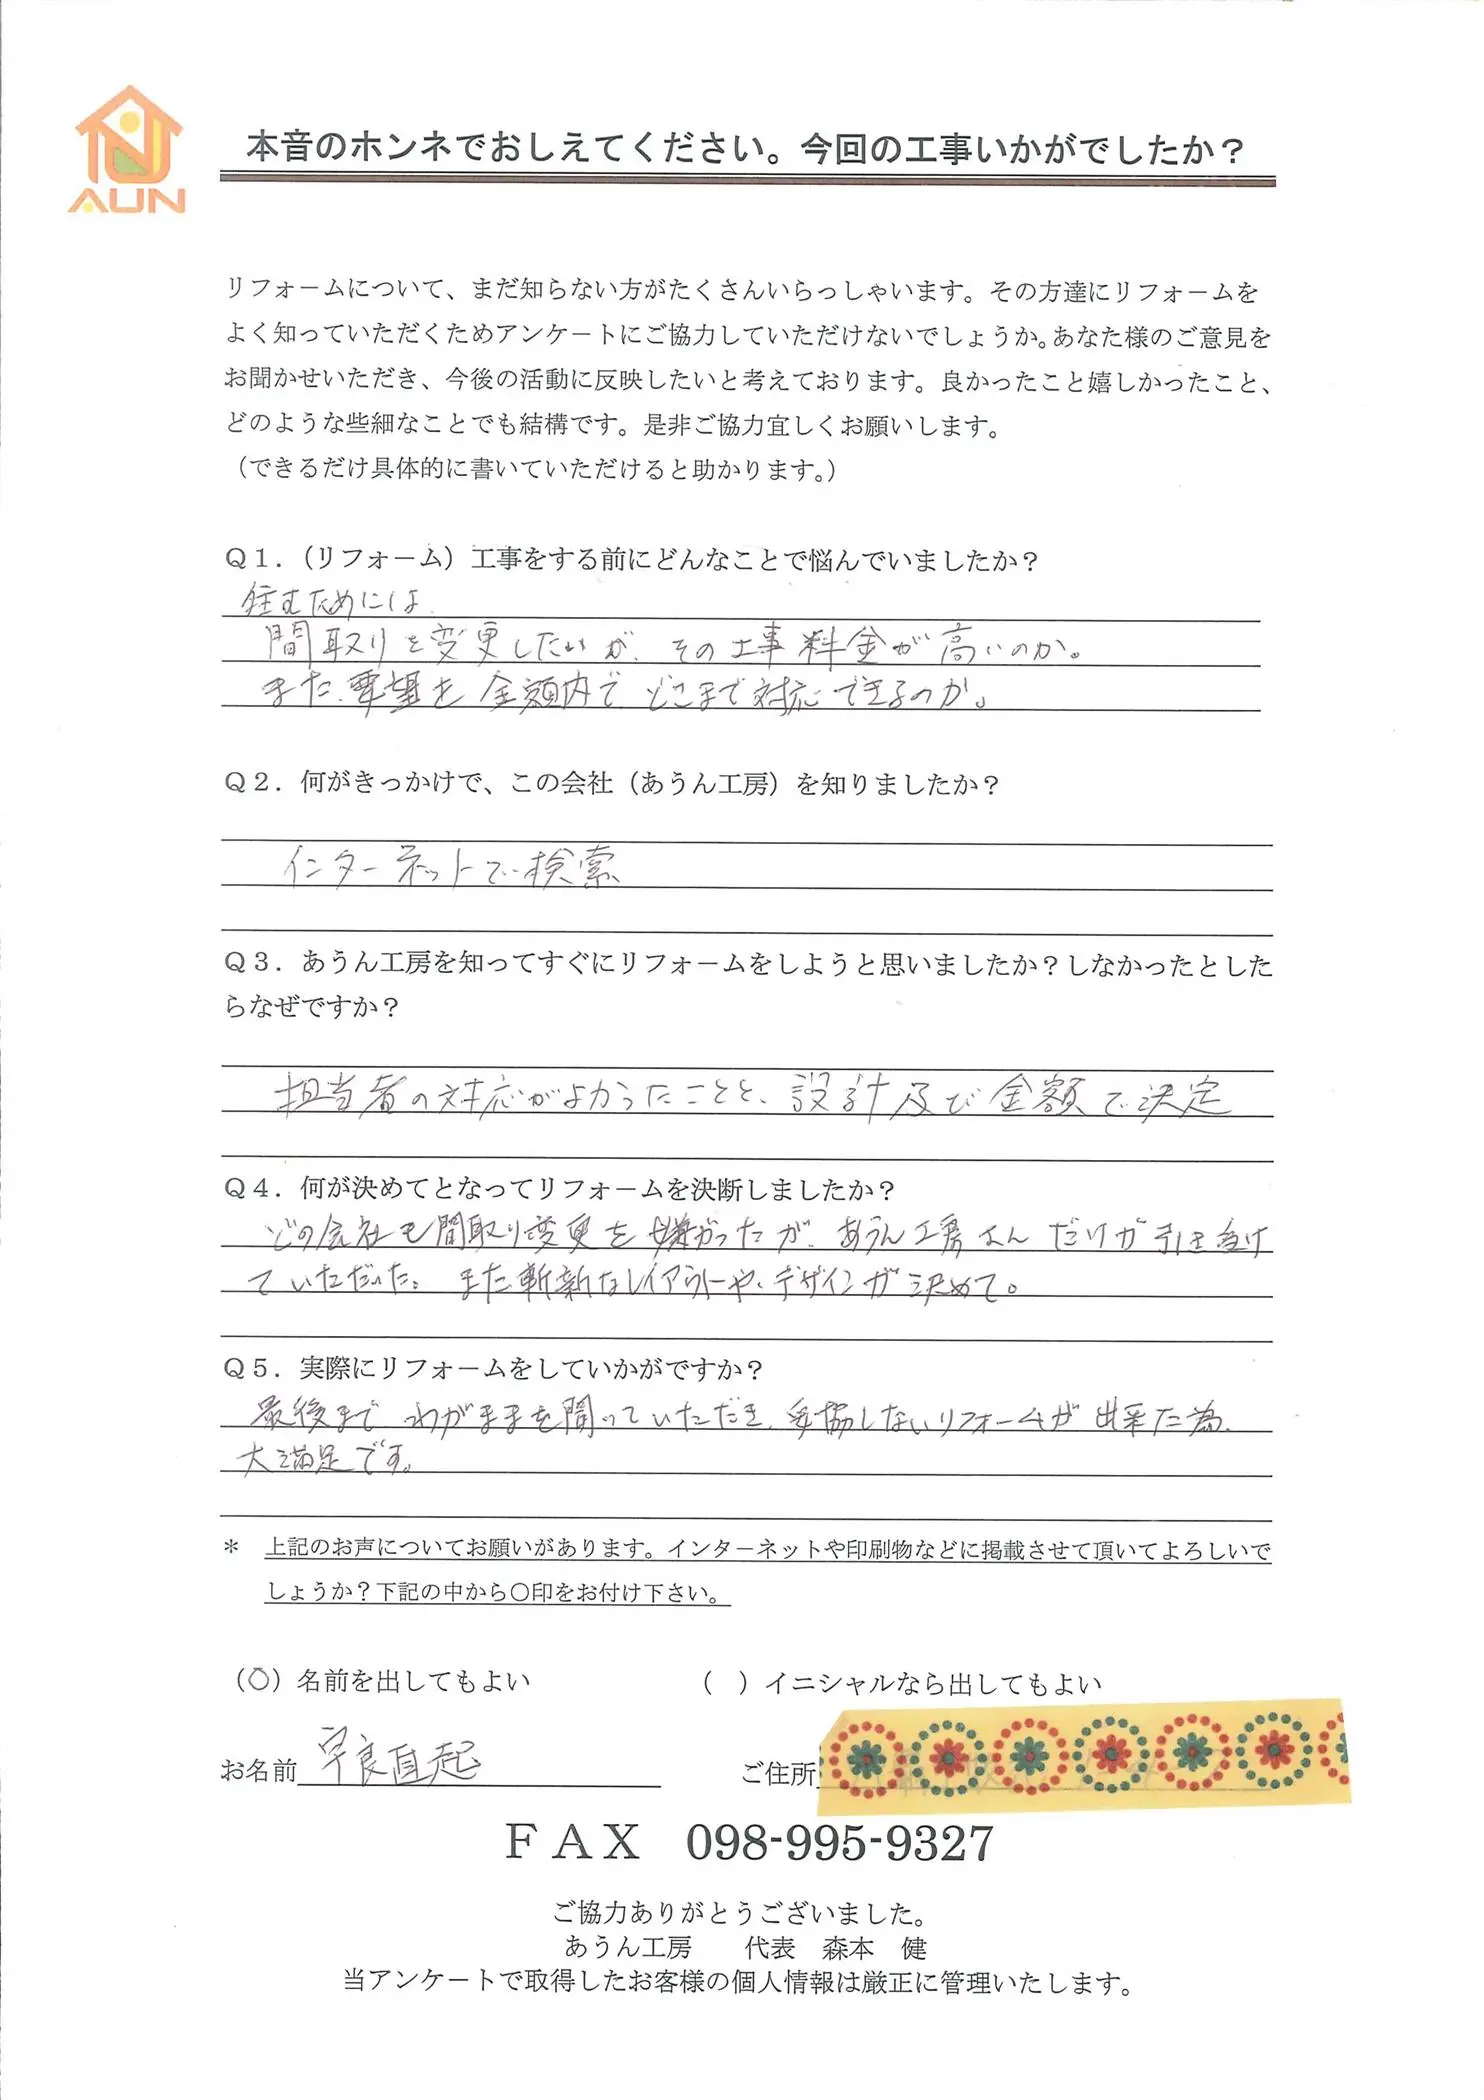 AUN
本音のホンネでおしえてください。今回の工事いかがでしたか？
リフォームについて、まだ知らない方がたくさんいらっしゃいます。その方達にリフォームを
よく知っていただくためアンケートにご協力していただけないでしょうか。あなた様のご意見を
お聞かせいただき、今後の活動に反映したいと考えております。良かったこと嬉しかったこと、
どのような些細なことでも結構です。是非ご協力宜しくお願いします。
（できるだけ具体的に書いていただけると助かります。）
Ｑ１．（リフォーム）工事をする前にどんなことで悩んでいましたか？
住むためには、
間取りを変更したいが、その工事料金が高いのか。
また、要望を金額内でどこまで対応できるのか。
Ｑ２．何がきっかけで、この会社（あうん工房）を知りましたか？
インターネットで検索
Ｑ３．あうん工房を知ってすぐにリフォームをしようと思いましたか？しなかったとした
らなぜですか？
担当者の対応がよかったことと、設計及び金額で決定
Ｑ４．何が決めてとなってリフォームを決断しましたか？
どの会社も間取り変更を嫌がったが、あうん工房さんだけが引き受け
ていただいた。また斬新なレイアウトや、デザインが決めて。
Ｑ５．実際にリフォームをしていかがですか？
最後までわがままを聞っていただき、妥協しないリフォームが出来た為、
大満足です。
＊　上記のお声についてお願いがあります。インターネットや印刷物などに掲載させて頂いてよろしいで
しょうか？下記の中から○印をお付け下さい。
（○）名前を出してもよい　（　）イニシャルなら出してもよい
お名前 宇良直起　ご住所
ＦＡＸ　098-995-9327
ご協力ありがとうございました。
あうん工房　代表　森本　健
当アンケートで取得したお客様の個人情報は厳正に管理いたします。